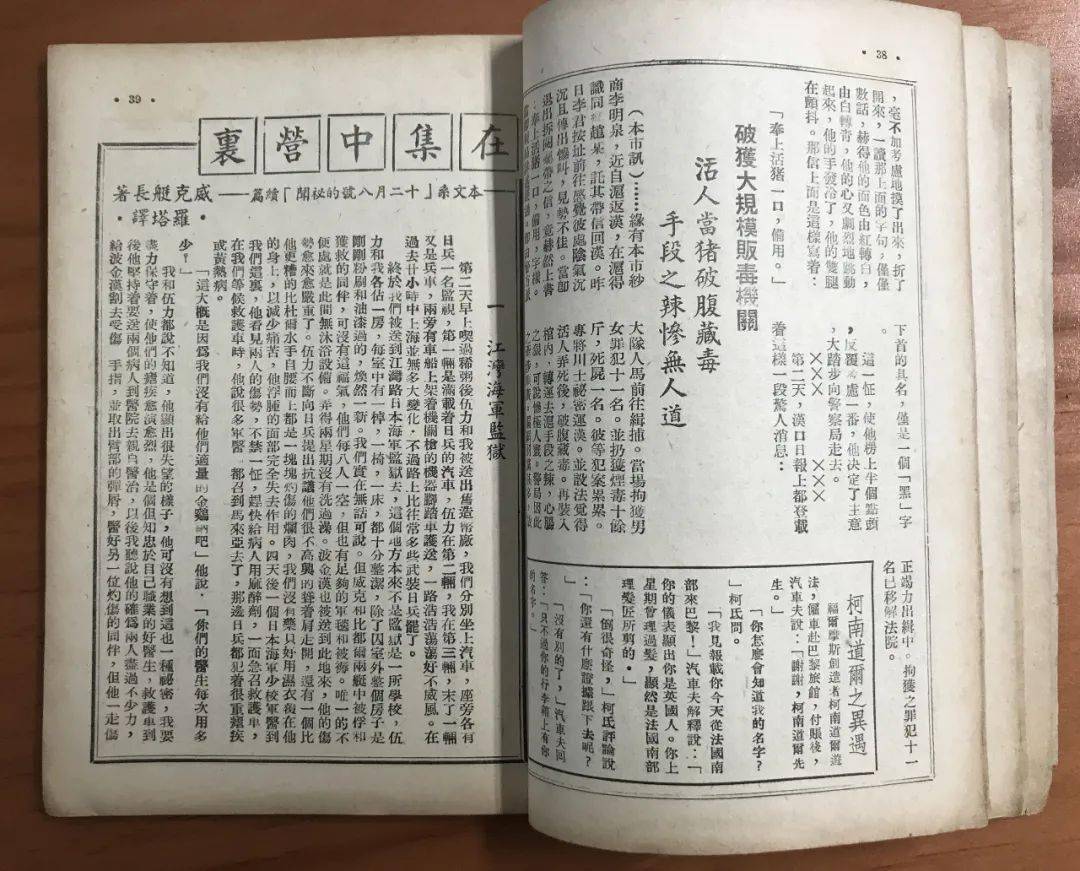 • 38 •
，毫不加考慮地摸了出來，折了
開來，一讀那上面的字句，僅僅
數話，赫得他的面色由紅轉白，
由白轉青，他的心又劇烈地跳動
起來，他的手發冷了，他的雙腿
在顫抖。那信上面是這樣寫着：
「奉上活猪一口，備用。」
下首的具名，僅是一個「黑」字
。
這一怔，使他楞上半個點鐘
，反覆考慮一番，他決定了主意
，大踏步向警察局走去。
××× ×××
第二天，漢口日報上都登載
着這樣一段驚人消息：
破獲大規模販毒機關
活人當猪破腹藏毒
手段之辣慘無人道
（本市訊）……緣有本市紗
商李明泉，近自滬返漢，在滬得
識同趙某，託其帶信回漢。昨
日李君按址前往感覺彼處陰氣沉
沉且傳出慘叫，見勢不佳。當卽
退出拆閱秘帶之信，竟赫然上書
：奉上活猪一口，備用，字樣。
大隊人馬前往緝捕。當場拘獲男
女罪犯十一名。並扔獲煙毒十餘
斤，死屍一名。彼等犯案累累。
專將川士祕密運漢。並設法覓得
活人弄死後，破腹藏毒。再裝入
棺內，轉運去滬手段之辣，心腸
之狠，可說慘極人寰。警局因此
正竭力出緝中。拘獲之罪犯十一
名已移解法院。
柯南道爾之異遇
福爾摩斯創造者柯南道爾遊
法，僱車赴巴黎旅館，付賬後，
汽車夫說：「謝謝，柯南道爾先
生。」
「你怎麼會知道我的名字？
」柯氏問。
「我見報載你今天從法國南
部來巴黎！」汽車夫解釋說：「
你的儀表顯出你是英國人。你上
星期曾理過髮，顯然是法國南部
理髮匠所剪的。」
「倒很奇怪，」柯氏評論說
：「你還有什麼證據跟下去呢？
」
「沒有別的了，」汽車夫回
答：「只不過你的行李箱上有你
的名字。」
• 39 •
在集中營裏
——本文系「十二月八號的祕聞」續篇——
威克艇長著
•羅塔譯•
一　江灣海軍監獄
第二天早上喫過稀粥後伍力和我被送出舊造幣廠，我們分別坐上汽車，座旁各有
日兵一名監視，第一輛是滿載着日兵的汽車，伍力在第二輛，我在第三輛，末了一輛
又是兵車，兩旁有車船上架着機關槍的機器腳踏車護送，一路浩浩蕩蕩好不威風。在
過去廿小時中上海並無多大變化，不過路上比往常多些武裝日兵罷了。
終於我們被送到江灣路日本海軍監獄去，這個地方本來不是監獄是一所學校，伍
力和我各佔一房，每室中有一棹，一椅，一床，都十分整潔，除了囚室外整個房子是
剛剛粉刷和油漆過的，煥然一新。我們實在無話可說。但威克和比都爾兩艇中被俘
獲救的同伴，可沒有這福氣，他們每八人一室，但也有足夠的軍毯和被褥。唯一的不
便處就是此間無沐浴設備。弄得兩星期沒有洗過澡。波金漢也被送到此地來，他的傷
勢愈來愈嚴重了。伍力不斷向日兵提出抗議他們很不高興的聳着肩走開，還有一個比
他更糟的比杜爾水手自腰而上都是一塊塊灼傷的爛肉，我們沒有藥只好用濕衣復在他
的身上，以減少痛苦，他浮腫的面部完全失去作用。四天後一個日本海軍少校軍醫到
我們這裏，他看見兩人的傷勢，不禁一怔，趕快給病人用麻醉劑，一面急召救護車，
在我們等候救護車時，他說很多軍醫都召到馬來亞去了，那邊日兵都犯着很重瘧疾
或黃熱病。
「這大概是因爲我們沒有給他們適量的金雞納吧」他說，「你們的醫生每次用多
少！」
我和伍力都說不知道，他顯出很失望的樣子，他可沒有想到這也一種祕密，我要
盡力保守着，使他們的瘧疾愈演愈烈，他是個但知忠於自己職業的好醫生，救護車到
後他堅持着要送兩個病人到醫院去親自醫治，以後我聽說他的確爲兩人盡過不少力，
給波金漢割去受傷手指，並取出臂部的彈屑，醫好另一位灼傷的同伴，但他一走傷